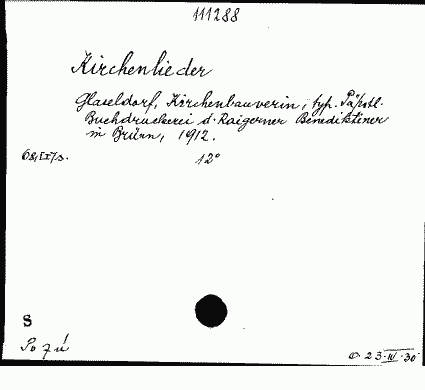 111288
Kirchenlieder
Glaseldorf, Kirchenbauverin, typ. Päpstl.
Buchdruckerei d. Raigerner Benediktiner
in Brünn, 1912.
68, IX/s. 12°
S
Po 7 ú
O. 23. III. 30